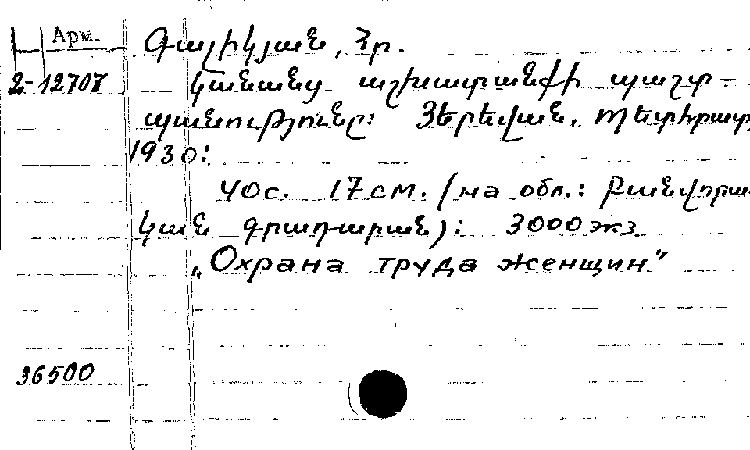 Арм. Գալիկյան, Հր.
2-12707 Կանանց աշխատանքի պաշտ-
պանությունը: Յերեվան, Պետհրատ
1930:
40с. 17см. (на обл.: Բանվորա
կան գրադարան): 3000 экз.
„Охрана труда женщин"
36500